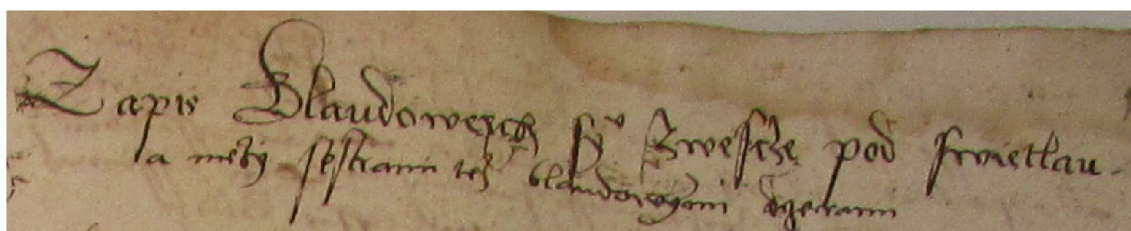 Zapis Blaudoweych sy° Zwescze pod swietlau
a mezy sestrami tez blaudowymi dczerami